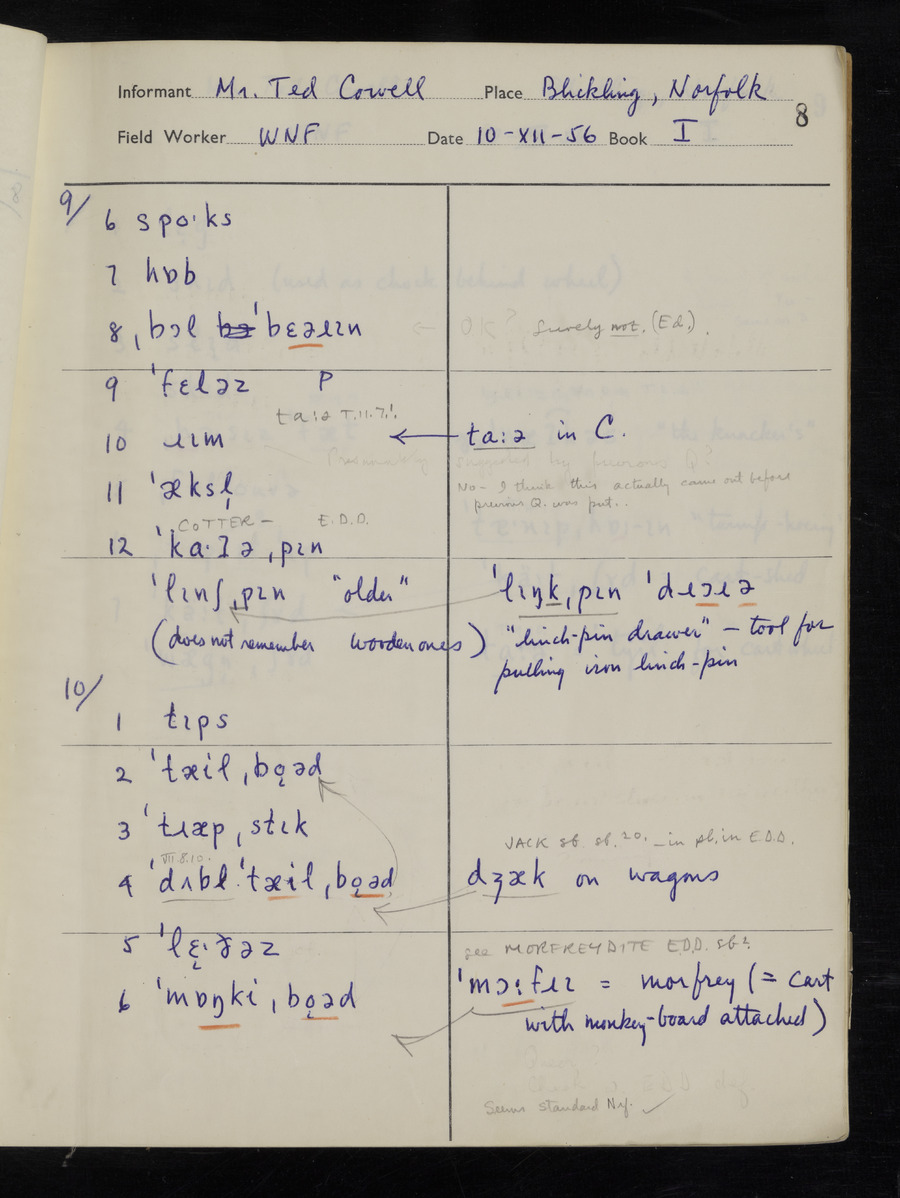 Informant Mr. Ted Cowell Place Blickling, Norfolk
8
Field Worker WNF Date 10-XII-56 Book I
9/ 6 spoˑks
7 hɒb
8 ˌbɔl ˈbɛəɹɪn
OK? Surely not. (Ed.).
9 ˈfɛləz P
ta:ə T.11.7!.
10 ɹɪm
ta:ə in C.
Presumably suggested by previous Q?
11 ˈæksl̩
No - I think this actually came out before
previous Q. was put.
COTTER - E.D.D.
12 ˈkaˑʔə ˌpɪn
ˈlɪnʃˌpɪn "older"
ˈlɪŋkˌpɪn ˈdɹɔɹə
(does not remember wooden ones)
"linch-pin drawer" - tool for
pulling iron linch-pin
10/
1 tɪps
2 ˈtæilˌbo̜əd
3 ˈtɹæpˌstɪk
JACK sb. sb. 20. - in pl. in E.D.D.
VII.8.10.
4 ˈdʌbl ˈtæilˌbo̜əd
dʒæk on wagons
5 ˈlɛ̜ˑðəz
see MORFREYDITE E.D.D. sb?
6 ˈmɒŋkiˌbo̜əd
ˈmɔ:fɹɪ = morfrey (= cart
with monkey-board attached)
Seems standard Nf. ✓